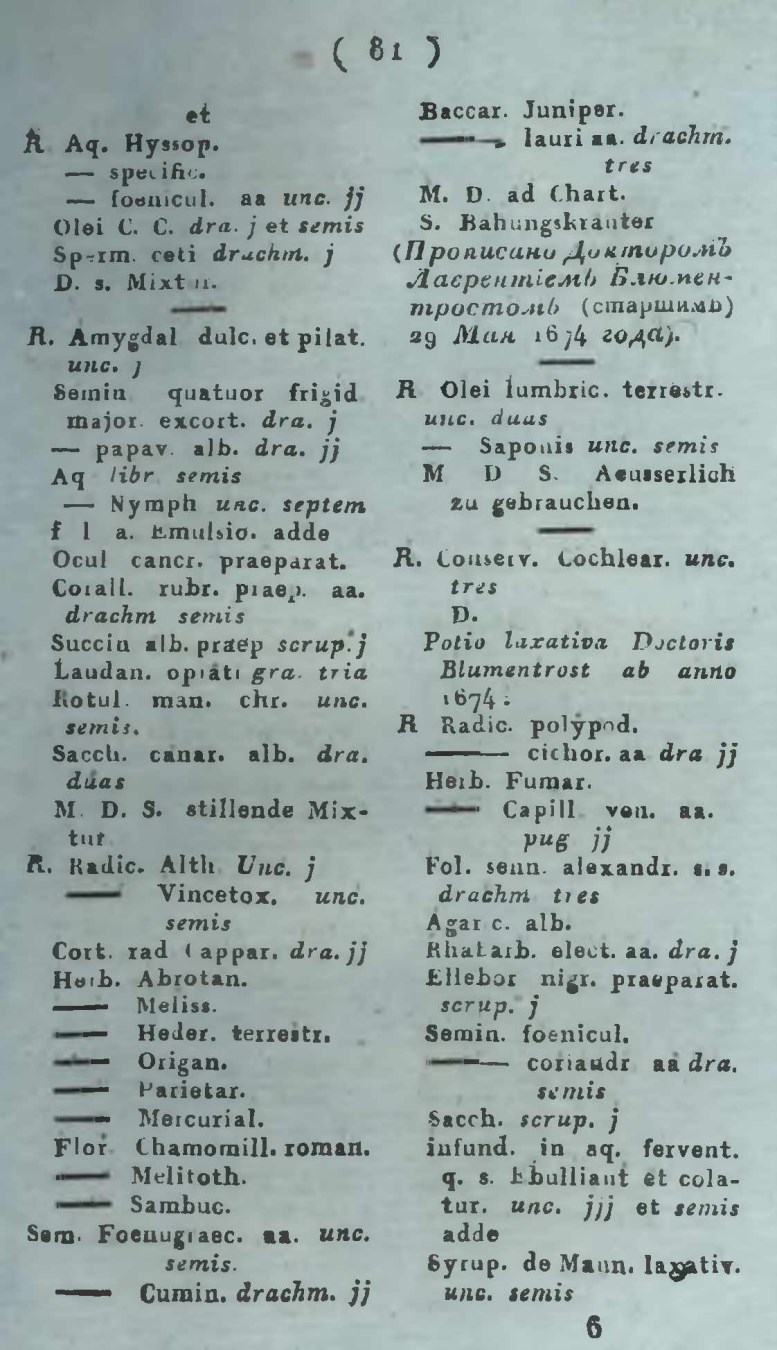 ( 81 )
et
R Aq. Hyssop.
— specific.
— foenicul. aa unc. jj
Olei C. C. dra. j et semis
Sperm. ceti drachm. j
D. s. Mixtu.
R. Amygdal dulc. et pilat.
unc. j
Semin quatuor frigid
major. excort. dra. j
— papav. alb. dra. jj
Aq libr semis
— Nymph unc. septem
f l a. Emulsio. adde
Ocul cancr. praeparat.
Corall. rubr. praep. aa.
drachm semis
Succin alb. praep scrup. j
Laudan. opiati gra. tria
Rotul. man. chr. unc.
semis.
Sacch. canar. alb. dra.
duas
M. D. S. stillende Mix-
tur
R. Radic. Alth Unc. j
— Vincetox. unc.
semis
Cort. rad Cappar. dra. jj
Herb. Abrotan.
— Meliss.
— Heder. terrestr.
— Origan.
— Parietar.
— Mercurial.
Flor Chamomill. roman.
— Melitoth.
— Sambuc.
Sem. Foenugraec. aa. unc.
semis.
— Cumin. drachm. jj
Baccar. Juniper.
— lauri aa. drachm.
tres
M. D. ad Chart.
S. Bahungskrauter
(Прописано Докторомъ
Лаврентіемъ Блюмен-
тростомъ (старшимъ)
29 Мая 1674 года).
R Olei lumbric. terrestr.
unc. duas
— Saponis unc. semis
M D S. Aeusserlich
zu gebrauchen.
R. Conserv. Cochlear. unc.
tres
D.
Potio laxativa Doctoris
Blumentrost ab anno
1674:
R Radic. polypod.
— cichor. aa dra jj
Herb. Fumar.
— Capill ven. aa.
pug jj
Fol. senn. alexandr. s. s.
drachm tres
Agaric. alb.
Rhabarb. elect. aa. dra. j
Ellebor nigr. praeparat.
scrup. j
Semin. foenicul.
— coriandr aa dra.
semis
Sacch. scrup. j
infund. in aq. fervent.
q. s. Ebulliant et cola-
tur. unc. jjj et semis
adde
Syrup. de Mann. laxativ.
unc. semis
6